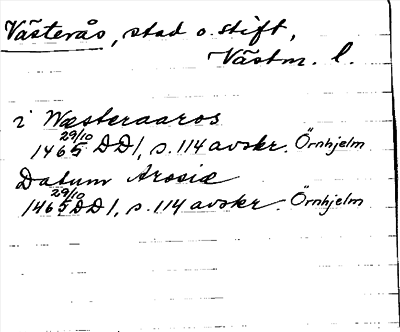 Västerås, stad o. stift,
Västm. l.
i Wæsteraaros
1465 29/10 DD1, s. 114 avskr. Örnhjelm
Datum Arosiæ
1465 29/10 DD1, s. 114 avskr. Örnhjelm